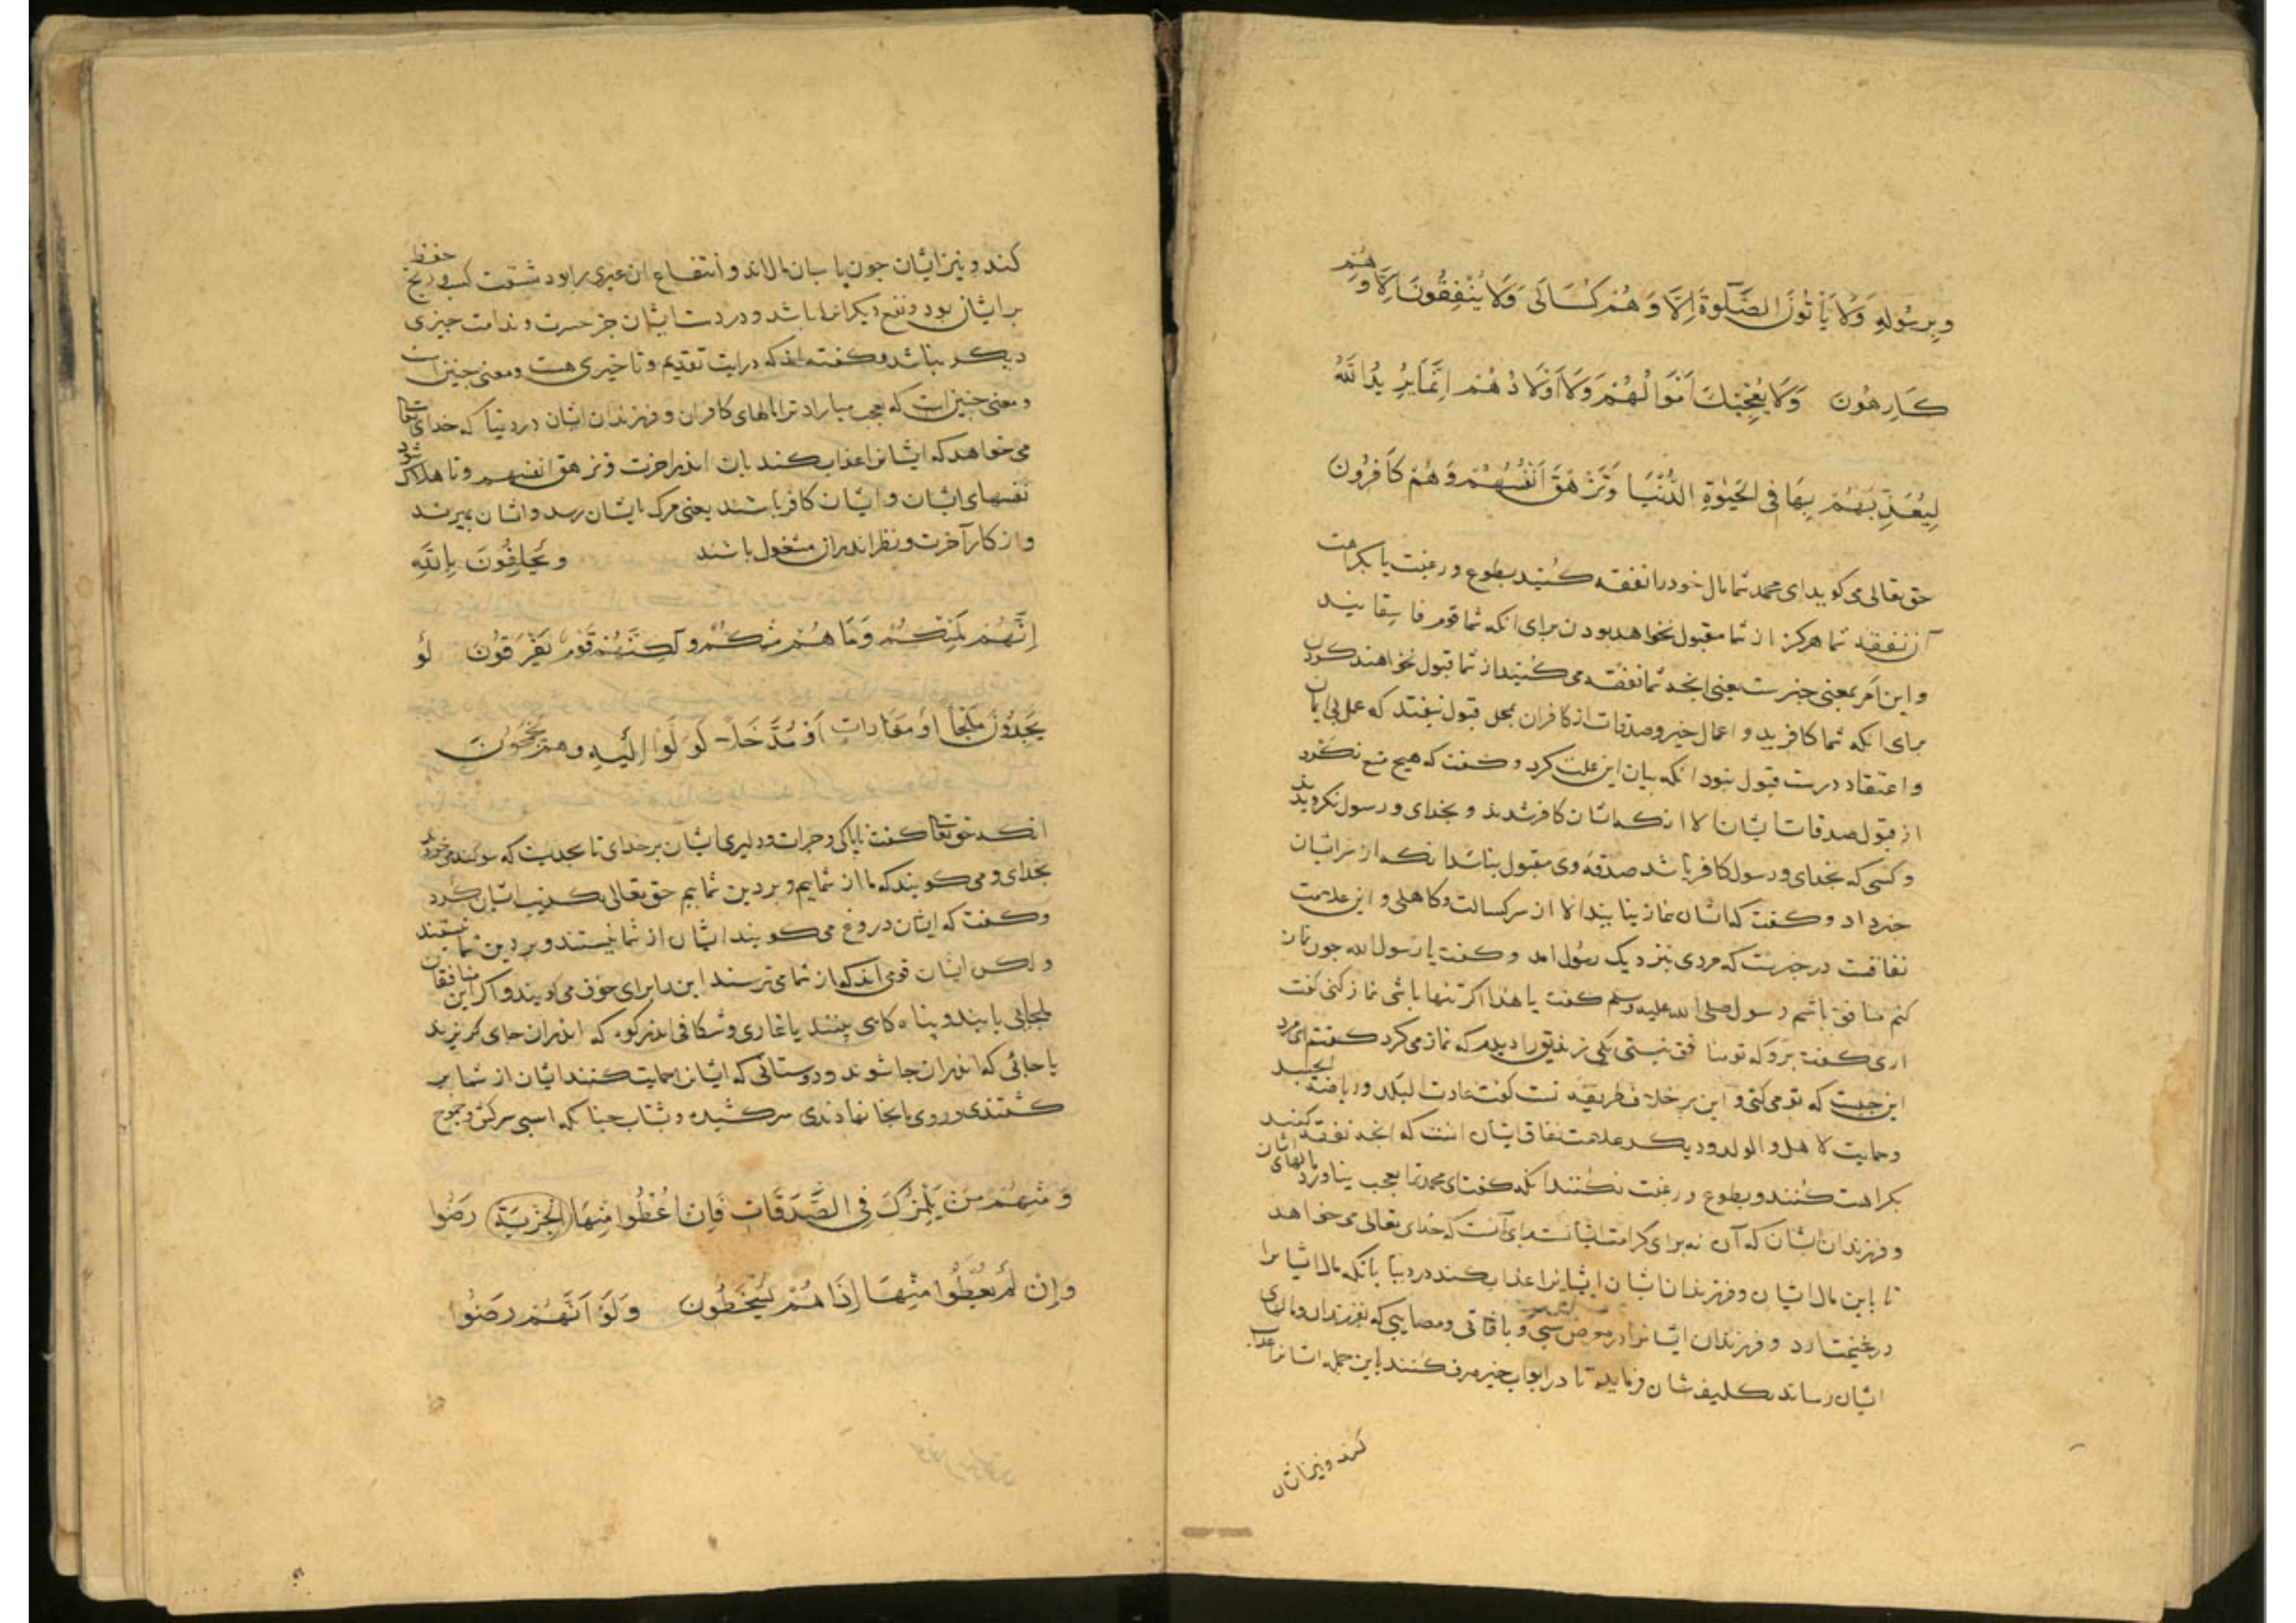 وَبِرَسُولِهِ وَلَا يَأْتُونَ الصَّلٰوةَ اِلَّا وَهُمْ كُسَالَى وَلَا يُنْفِقُونَ اِلَّا وَهُمْ
كَارِهُونَ وَلَا يُعْجِبْكَ اَمْوَالُهُمْ وَلَا اَوْلَادُهُمْ اِنَّمَا يُرِيدُ اللّٰهُ
لِيُعَذِّبَهُمْ بِهَا فِي الْحَيٰوةِ الدُّنْيَا وَتَزْهَقَ اَنْفُسُهُمْ وَهُمْ كَافِرُونَ
حق تعالی می کوید ای محمد شما مال خود را نفقه کنید بطوع و رغبت یا بکراهت
آن نفقه شما هرکز از شما مقبول نخواهد بودن برای انکه شما قوم فاسقانید
و این امر بمعنی خبرست یعنی انچه شما نفقه می کنید از شما قبول نخواهند کردن
برای انکه شما کافرید و اعمال خیر و صدقات از کافران بمحل قبول نیفتد که عمل بی ایمان
و اعتقاد درست قبول نبود انکه بیان این علت کرد و کفت که هیچ منع نکرد
از قبول صدقات ایشان الا انکه ایشان کافر شدند و بخدای و رسول نکرویدند
و کسی که بخدای و رسول کافر باشد صدقه وی مقبول نباشد انکه از سر ایشان
خبر داد و کفت که ایشان نماز نیایند الا از سر کسالت و کاهلی و این علامت
نفاقست در خبرست که مردی بنزدیک رسول امد و کفت یا رسول الله جون نماز
کنم منافق باشم رسول صلی الله علیه وسلم کفت یا هذا اکر تنها باشی نماز کنی کفت
اری کفت برو که تو منافق نیستی یکی زندیق را دیدم که نماز می کرد کفتم ای مرد
این جیست که تو می کنی و این بر خلاف طریقه تست کفت عادت البلد و ریاضة الجسد
وحمایت الاهل و الولد و دیکر علامت نفاق ایشان انست که انچه نفقه کنند
بکراهت کنند و بطوع و رغبت نکنند انکه کفت ای محمد ترا بعجب نیاورد مالهای ایشان
و فرزندان ایشان که آن نه برای کرامت ایشانست برای آنست که خدای تعالی می خواهد
تا باین مال ایشان و فرزندان ایشان ایشانرا عذاب کند در دنیا بانکه مال ایشانرا
در غنیمت ارد و فرزندان ایشانرا در معرض سبی و بافاتی و مصایبی که بفرزندان و مالهای
ایشان رساند بتکلیف شان فرماید تا در ابواب خیر صرف کنند باین جمله ایشانرا عذاب
کند و نیز ایشان
کند و نیز ایشان جون پاسبان مال اند و انتفاع ان غیری را بود مشقت کسب و رنج حفظ
بر ایشان بود و نفع دیکرانرا باشد و در دست ایشان جز حسرت و ندامت چیزی
دیکر نباشد و کفته اند که در ایت تقدیم و تاخیری هست و معنی چنین است
و معنی چنین است که عجب میاراد ترا مالهای کافران و فرزندان ایشان در دنیا که خدای تعالی
می خواهد که ایشانرا عذاب کند بان اندر اخرت وتزهق انفسهم و تا هلاک شود
نفسهای ایشان و ایشان کافر باشند یعنی مرک بایشان رسد و ایشان بمیرند
و از کار آخرت و نظر اندر ان مشغول باشند وَيَحْلِفُونَ بِاللّٰهِ
اِنَّهُمْ لَمِنْكُمْ وَمَا هُمْ مِنْكُمْ وَلَكِنَّهُمْ قَوْمٌ يَفْرَقُونَ لَوْ
يَجِدُونَ مَلْجَأً اَوْ مَغَارَاتٍ اَوْ مُدَّخَلًا لَوَلَّوْا اِلَيْهِ وَهُمْ يَجْمَحُونَ
انکه حق تعالی کفت ناپاکی و جرات و دلیری ایشان بر خدای تا بحدیست که سوکند می خورند
بخدای و می کویند که ما از شماییم و بر دین شماییم حق تعالی تکذیب ایشان کرد
و کفت که ایشان دروغ می کویند ایشان از شما نیستند و بر دین شما نیستند
و لکن ایشان قومی اند که از شما می ترسند این را برای خوف می کویند و اکر این منافقان
ملجایی یابند و پناه کاهی بینند یا غاری و شکافی اندر کوه که اندران جای کریزند
یا جائی که اندران جا شوند و دوستانی که ایشانرا حمایت کنند ایشان از شما بر
کشتندی و روی بانجا نهادندی سر کشیده و بشتاب چنانکه اسبی سرکش و جموح
وَمِنْهُمْ مَنْ يَلْمِزُكَ فِي الصَّدَقَاتِ فَاِنْ اُعْطُوا مِنْهَا الجزیة رَضُوا
وَاِنْ لَمْ يُعْطَوْا مِنْهَا اِذَا هُمْ يَسْخَطُونَ وَلَوْ اَنَّهُمْ رَضُوا